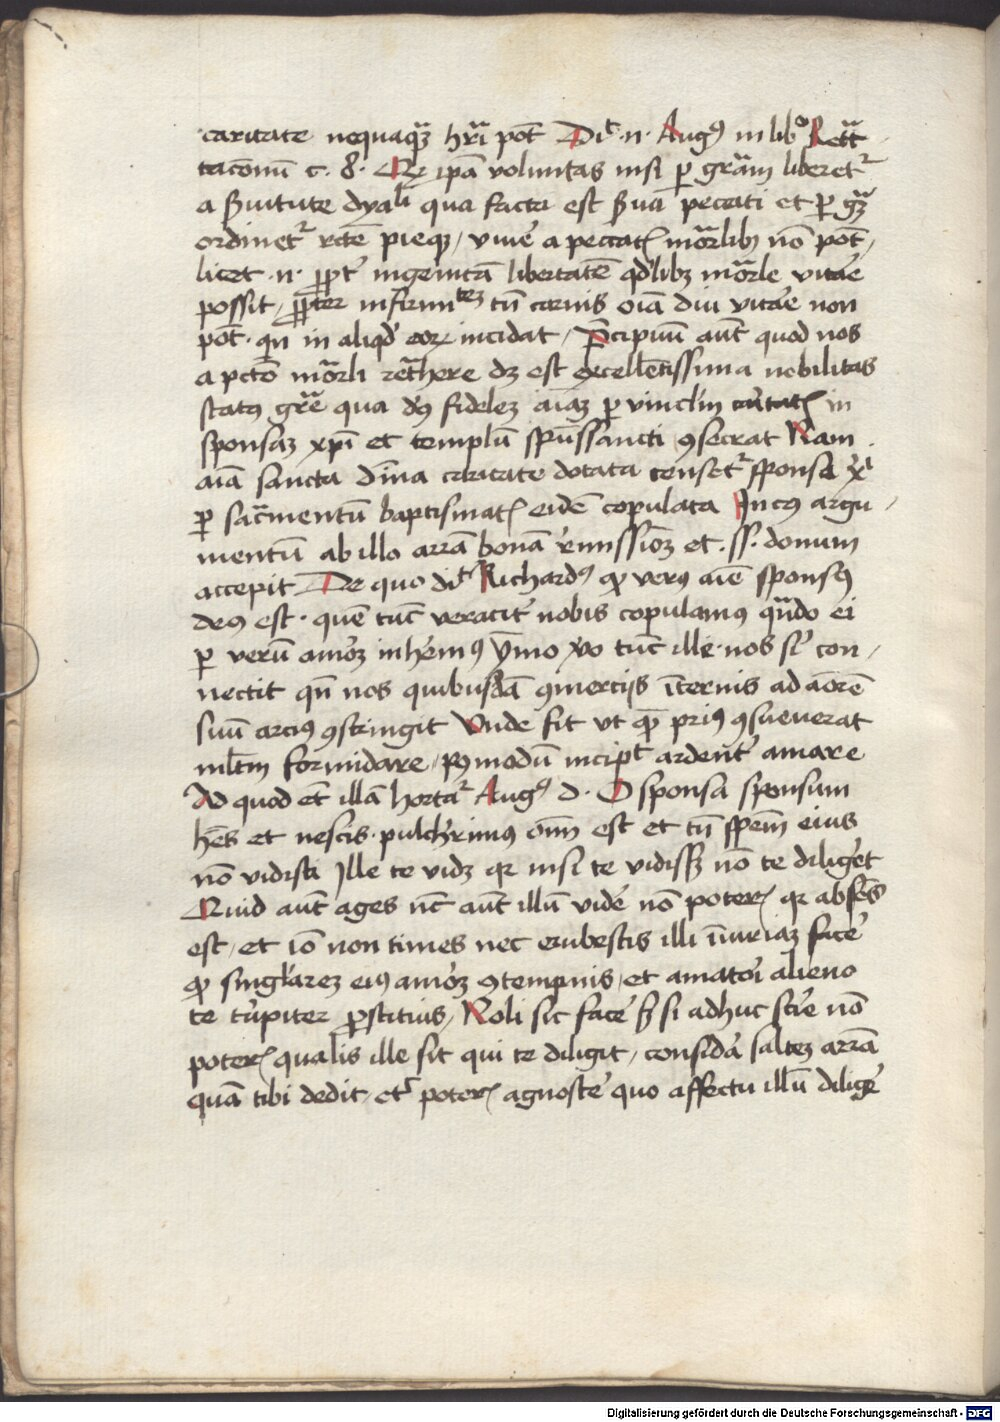 caritate nequaqȝ hr̃i põt Dic̃ .n. Augꝰ in libº Retᵃc̃
tacõnũ c. 8. Qꝛ ipã voluntas nisi ꝑ grãm liberetᷣ
a ẜuitute dyabli qua facta est ẜua peccati et ꝑ gr̃aȝ
ordinetᷣ rctẽ pieqȝ / viuẽ a peccatꝭ mõrlibȝ nõ põt /
licet .n. ꝓpt̃ ingenitã libertatẽ qđlibȝ mõrle vitãe
possit / ꝓpter infirmitẽȝ tñ carnis oĩa diu vitãe non
põt . qn in aliqđ eoꝝ incidat / P̃cipuũ aũt quod nos
a pctõ mõrli ret̃here dȝ est excellẽtissima nobilitas
statꝰ gr̃e qua dꝰ fideleȝ aĩaȝ ꝑ vinclm̃ in
sponsaȝ xp̃i et templũ spũssancti ꝯsecrat Nam
aĩa sancta diuĩa caritate dotata censetᷣ sponsa xⁱ
ꝑ sacr̃mentũ baptismatꝭ eidẽ copulata In cꝰ argu /
mentũ ab illo arrã bonã r̃emissiõȝ et .ss. donum
accepit De quo dic̃ Richardꝰ ꝙ verꝰ aĩe sponsꝰ
deꝰ est . quẽ tũc veracit̃ nobis copulamꝰ quãdo ei
ꝑ verũ amõȝ inhẽmꝰ ymo v̊o tũc ille nos sⁱ con /
nectit qñ nos quibusdã ꝯmercijs ĩternis ad aõrẽ
suũ arciꝰ ꝯstringit Vnde fit vt qᵒ priꝰ ꝯsueuerat
ml̃tm formidare / pꝰmodũ incipͭ ardent̃ amare
Ad quod et̃ illã hortaᷣ Augꝰ d. O sponsa sponsum
hẽs et nescis . pulch̃rimꝰ oĩm est et tñ spẽm eius
nõ vidisti Ille te vidȝ qꝛ nisi te vidissȝ nõ te dilig̃et
Quid aũt ages nc̃ aũt illũ vidẽ nõ poterꝭ qꝛ absẽs
est / et iõ non times nec erubescis illi ĩniuriaȝ facẽ
ꝙ singl̃areȝ eiꝰ amõȝ ꝯtempnis / et amatoĩ alieno
te tur̃piter ꝓstituis / Noli sic facẽ ẜ si adhuc scĩe nõ
poterꝭ qualis ille sit qui te diligit / considẽa salteȝ arrã
quã tibi dedit / etᷣ poterꝭ agnoscẽ quo affectu illũ diligẽ
Digitalisierung gefördert durch die Deutsche Forschungsgemeinschaft - DFG